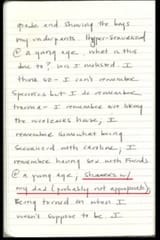 grade and showing the boys
my underpants. Hyper-sexualized
@ a young age. what is this
due to? was I molested. I
think so - I can't remember
specifics but I do remember
trauma - I remember not liking
the house, I
remember somewhat being
with caroline, I
remember having sex with friends
@ a young age, showers w/
my dad (probably not appropriate).
Being turned on when I
wasn't suppose to be. I